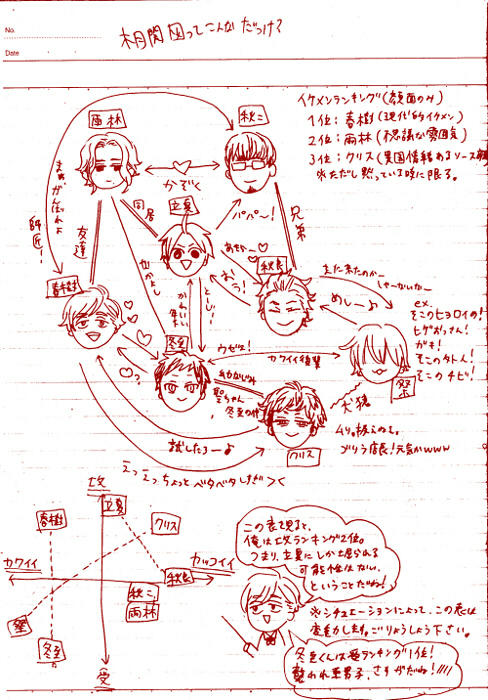 No.
Date
相関図ってこんなだっけ?
イケメンランキング(顔面のみ)
1位:春樹(現代的イケメン)
2位:雨林(不思議な雰囲気)
3位:クリス(異国情緒あるソース顔
※ただし黙っている時に限る。
雨林
秋二
かぞく
師匠!
まぁがんばれよ
友達
同居
立夏
パパ〜!
兄弟
なかよし
かわいい
とーじー!
秋良
おう!
また来たのかー
しゃーないなー
めしー♪
春樹
冬至
ウゼェ!
カワイイ後輩
祭
犬猿
ex.
そこのヒョロイの!
ヒゲおっさん!
ガキ!
そこのチビ!
クリス
試したろー♪
ゴリラ店長!元気かwww
えっえっ、ちょっとベタベタしすぎ><
攻
受
カワイイ
カッコイイ
春樹
立夏
クリス
秋良
秋二
雨林
祭
冬至
この表を見ると、
俺は攻ランキング2位。
つまり、立夏にしか掘られる
可能性はない、
ということだね!
※シチュエーションによって、この表は
変動します。ごりょうしょう下さい。
冬至くんは受ランキング1位!
襲われ系男子、さすがだね!!!!